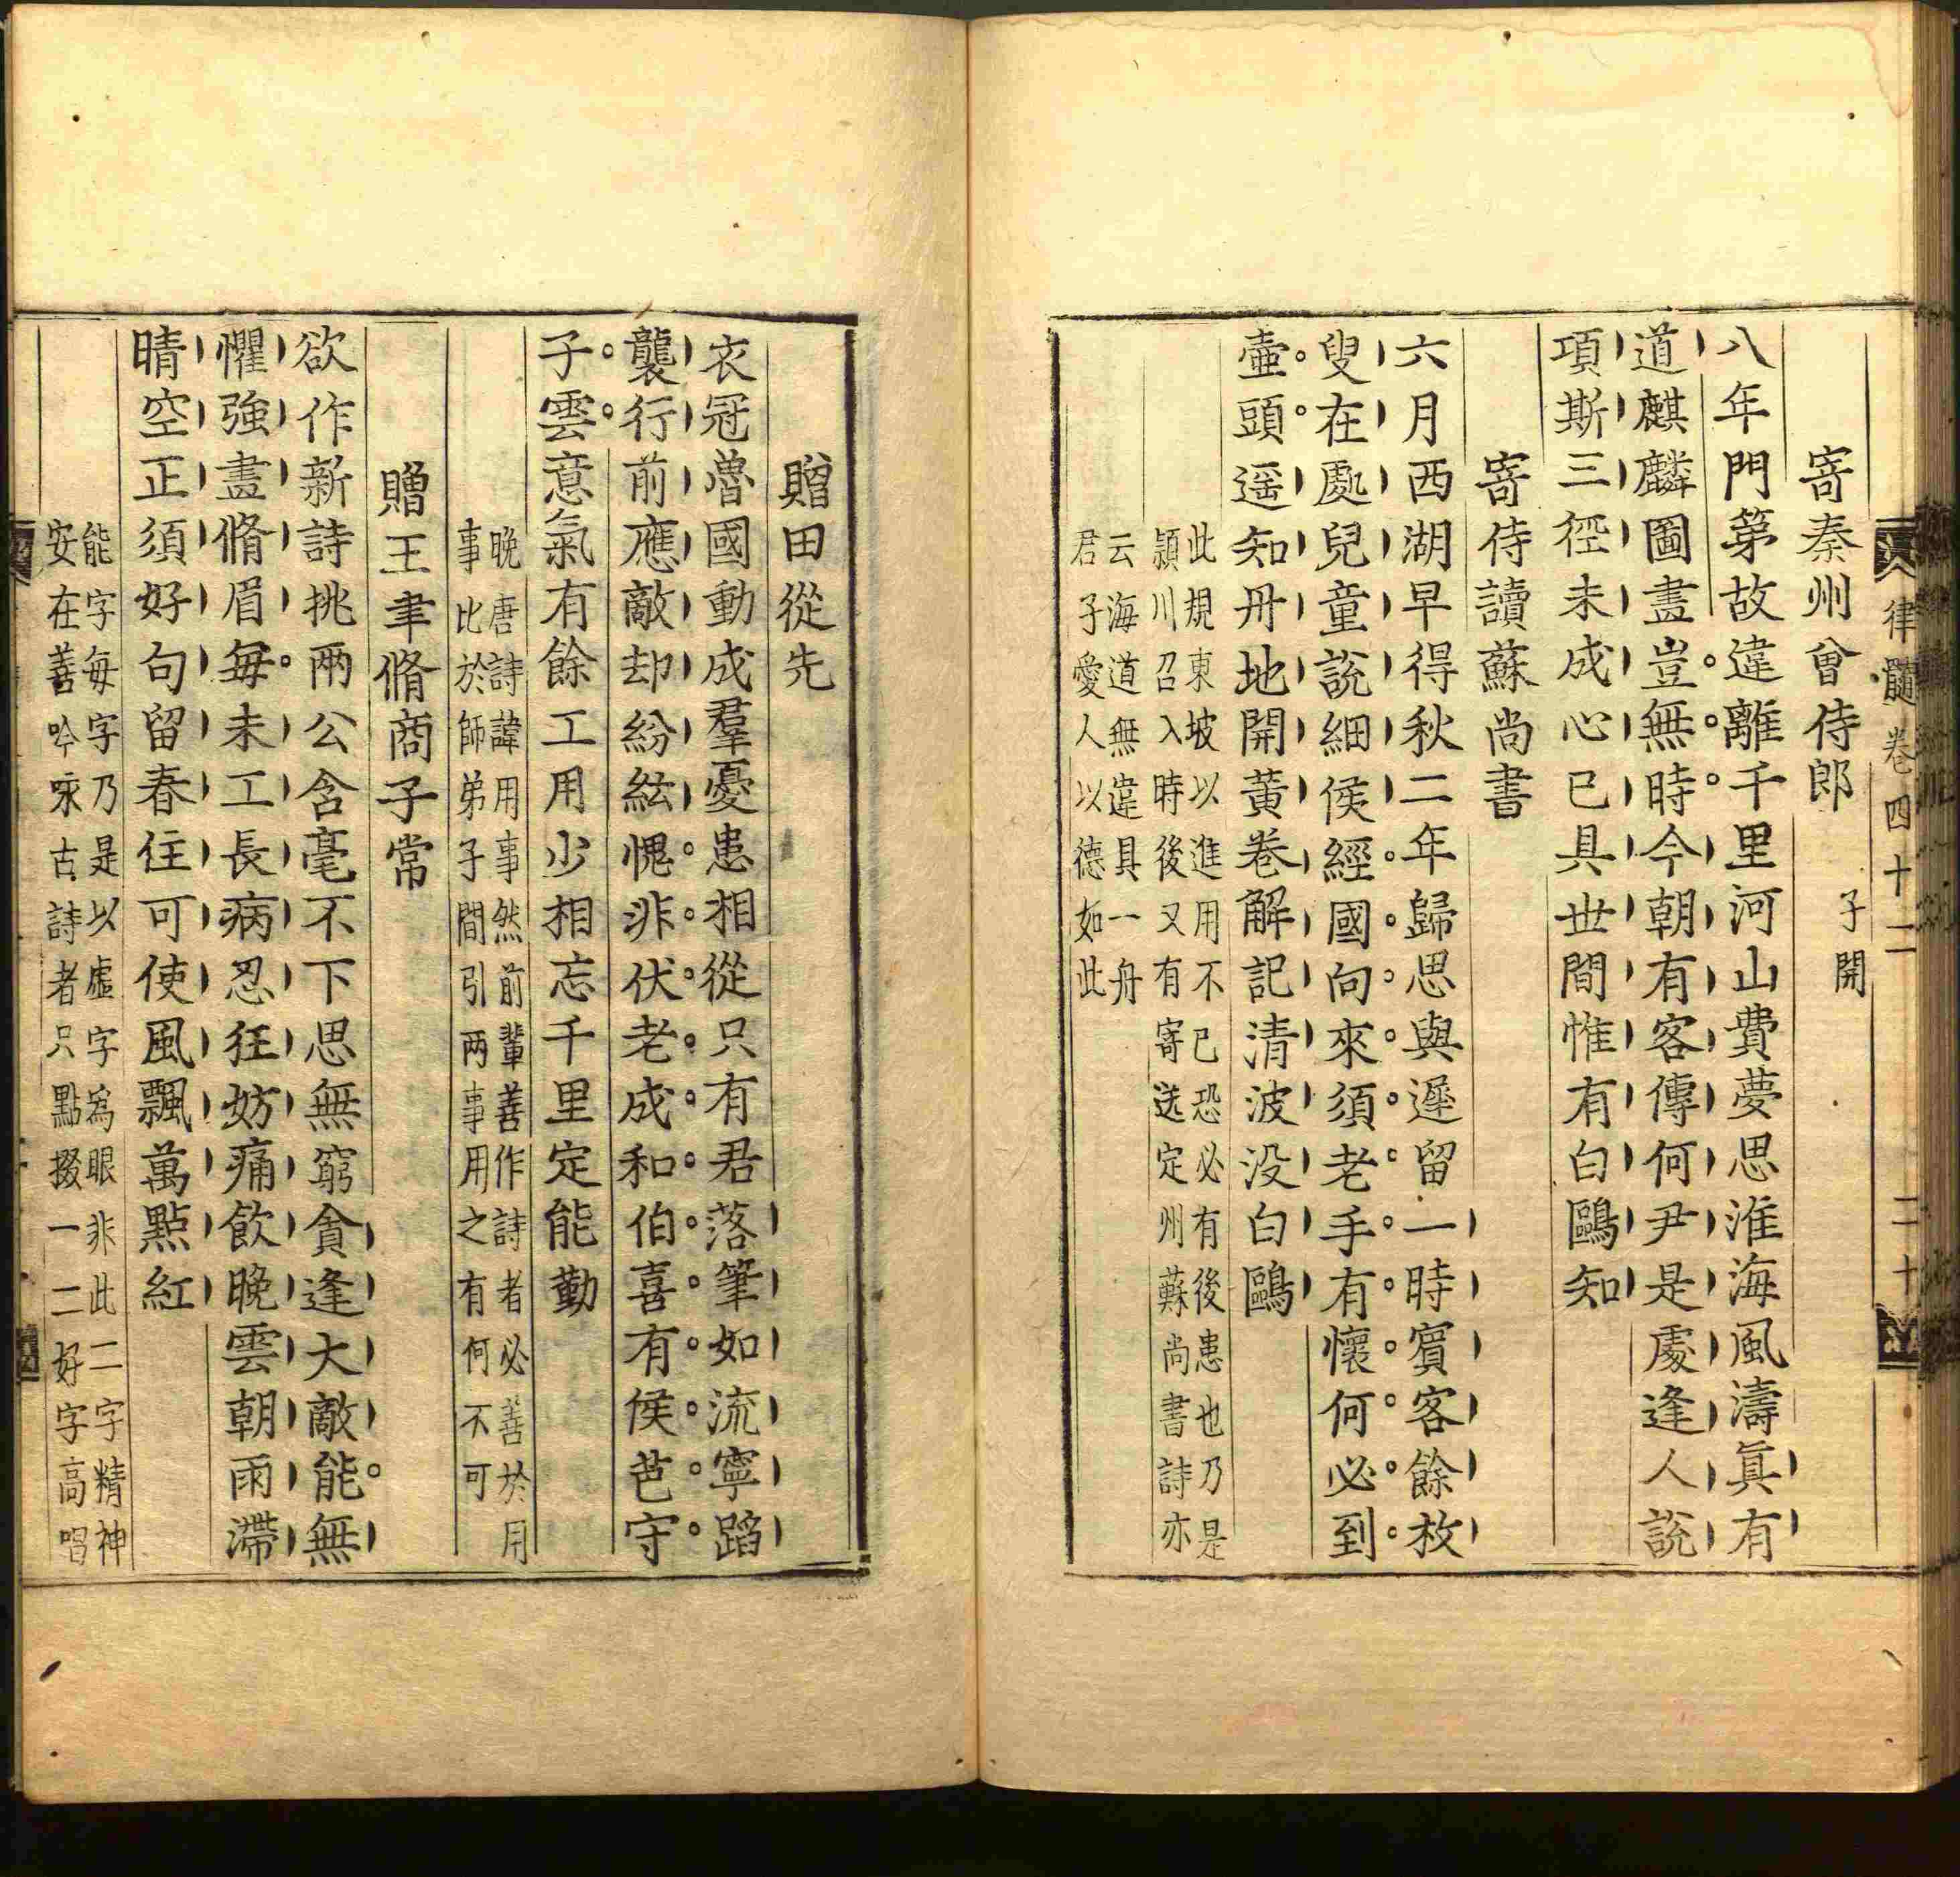 律髓卷四十二 二十
寄秦州曾侍郎 子開
八年門第故違離千里河山費夢思淮海風濤眞有
道麒麟圖畫豈無時今朝有客傳何尹是處逢人說
項斯三徑未成心已具世間惟有白鷗知
寄侍讀蘇尚書
六月西湖早得秋二年歸思與遲留一時賓客餘枚
叟在處兒童說細侯經國向來須老手有懷何必到
壺頭遥知丹地開黃卷解記清波没白鷗
此規東坡以進用不已恐必有後患也乃是
潁川召入時後又有寄送定州蘇尚書詩亦
云海道無違具一舟
君子愛人以德如此
贈田從先
衣冠魯國動成羣憂患相從只有君落筆如流寧蹈
襲行前應敵却紛紜愧非伏老成和伯喜有侯芭守
子雲意氣有餘工用少相忘千里定能勤
晚唐詩諱用事然前輩善作詩者必善於用
事比於師弟子間引兩事用之有何不可
贈王聿脩商子常
欲作新詩挑兩公含毫不下思無窮貪逢大敵能無
懼強畫脩眉每未工長病忍狂妨痛飲晚雲朝雨滯
晴空正須好句留春住可使風飄萬點紅
能字每字乃是以虛字爲眼非此二字精神
安在善吟咏古詩者只點掇一二好字高唱